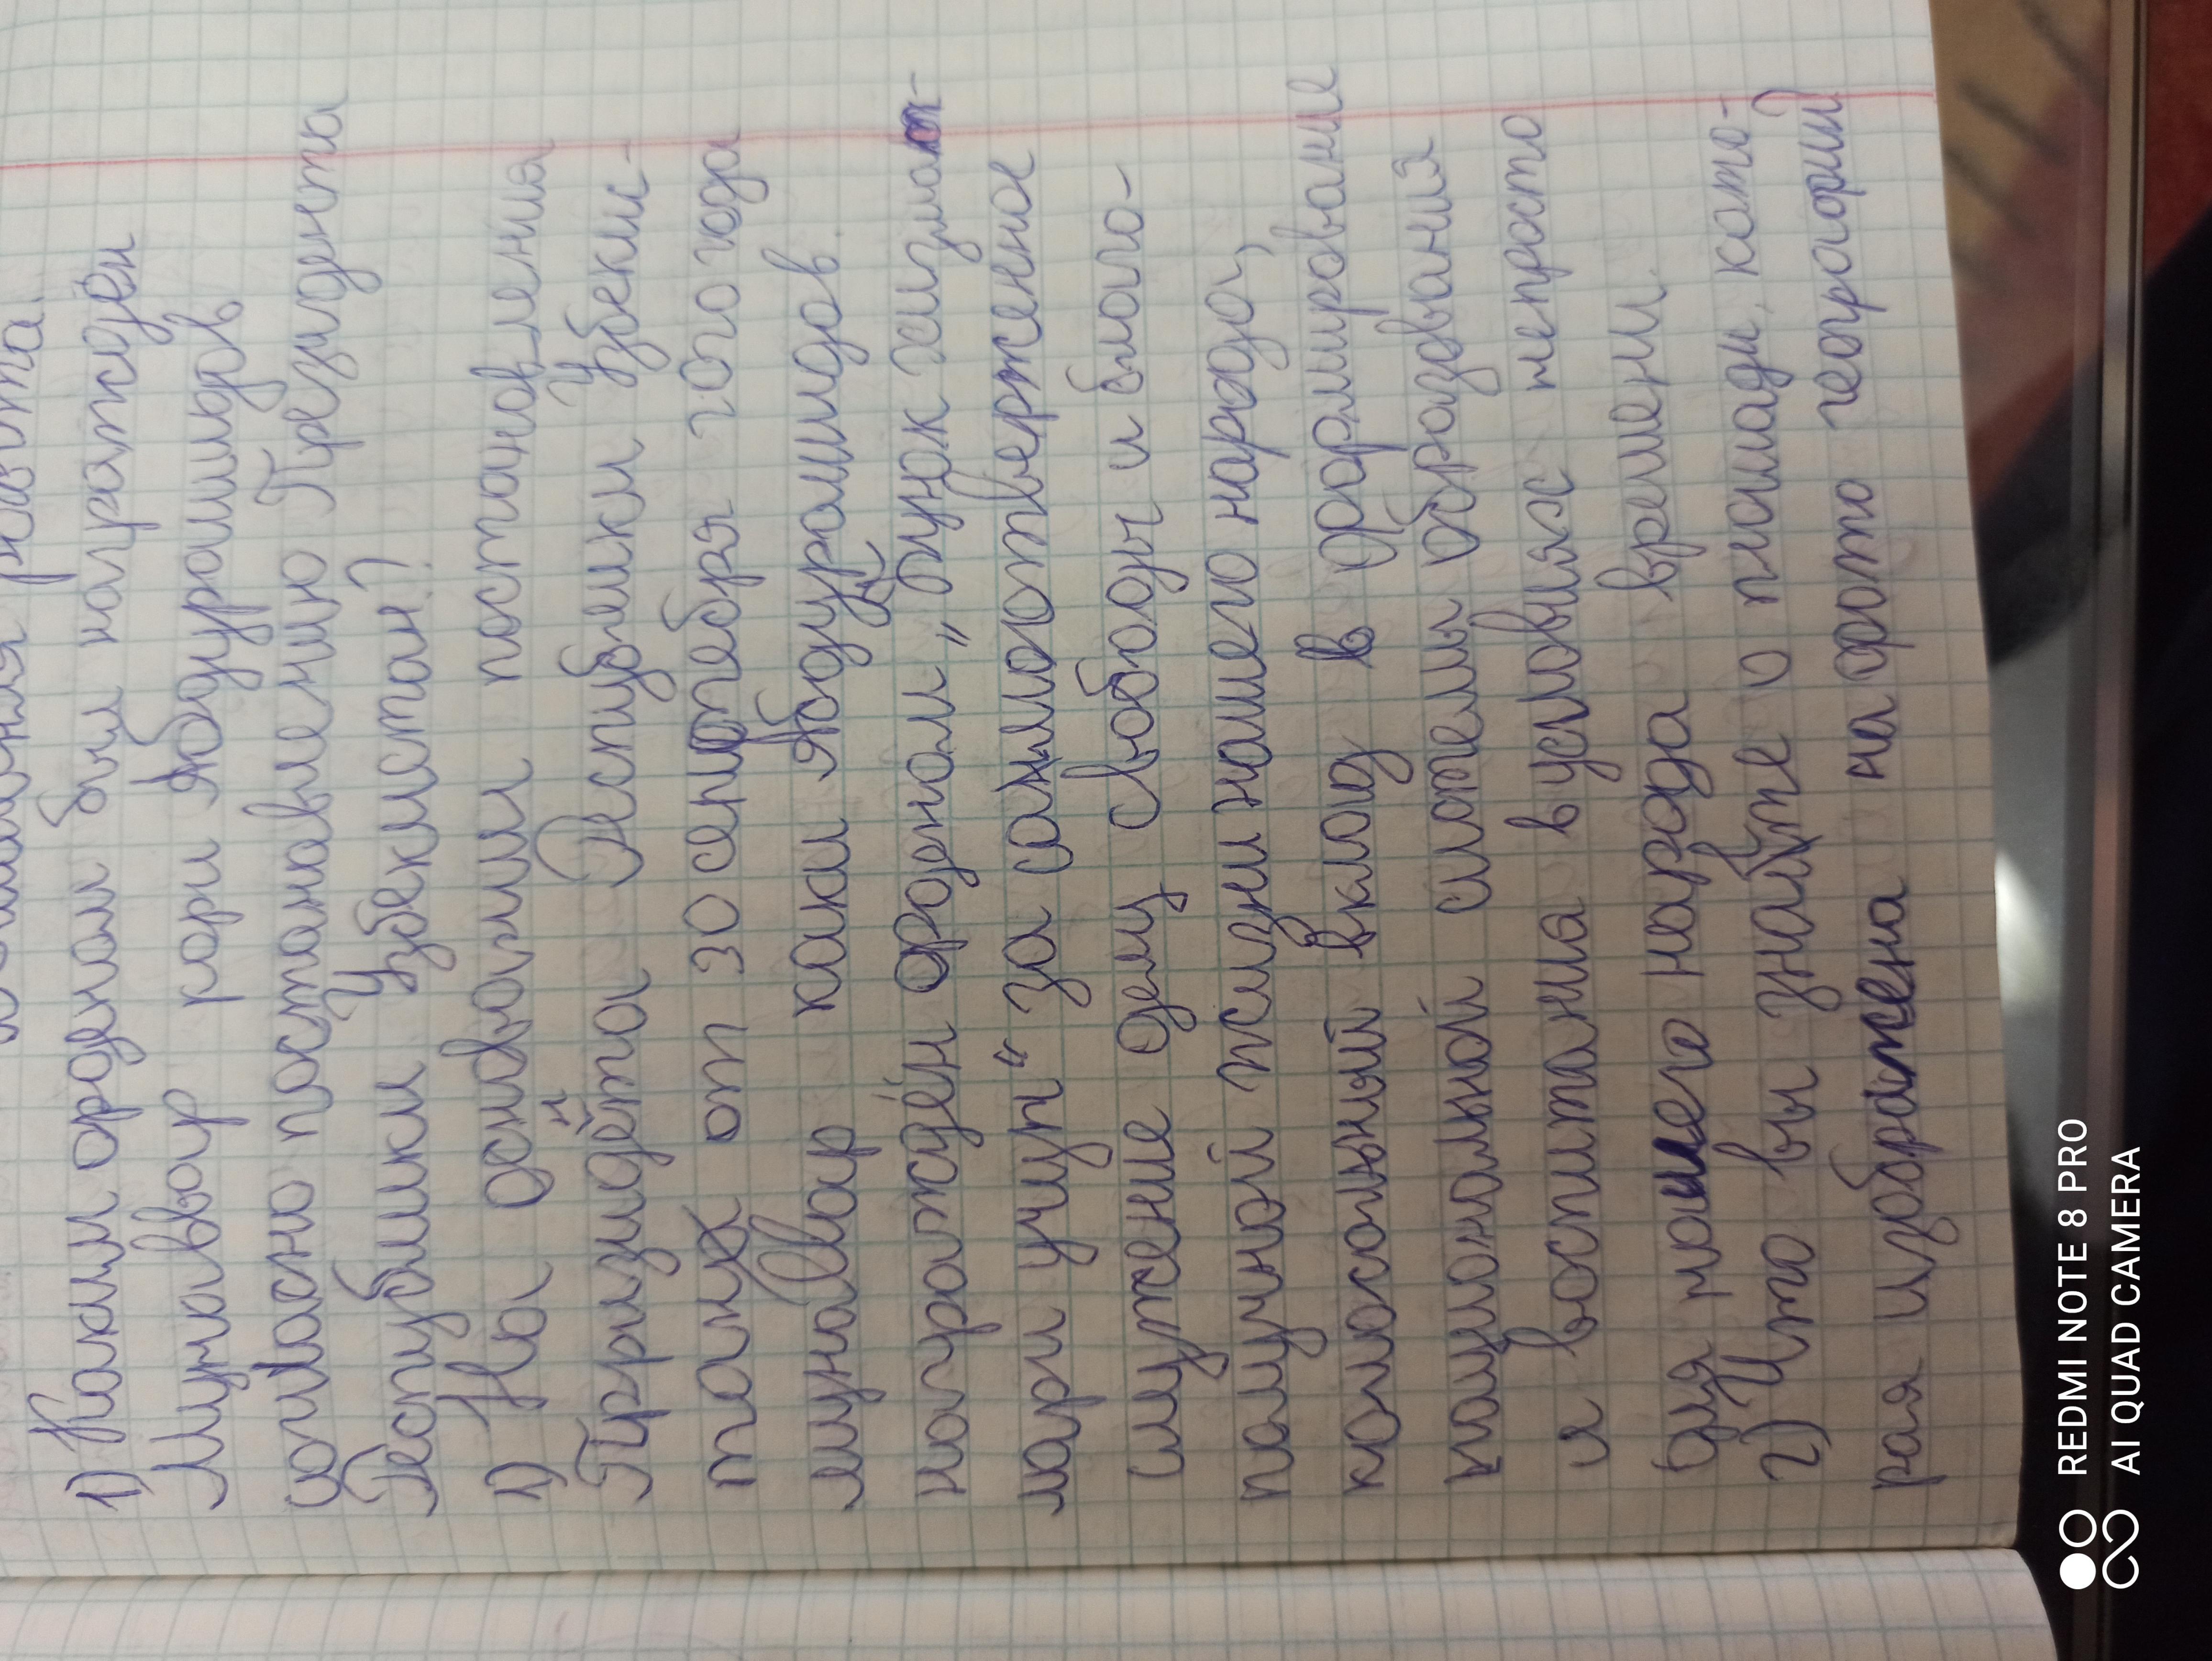 работа.
1) Каким орденом был награждён
Мунаввар кори Абдурашидов
согласно постанавлению Президента
Республики Узбекистан?
1) На основании постановления
Призидета Республики Узбекис-
тан от 30 сентебря 2020 года
мунаввар кАри Абдурашидов
награждён орденом „Буюк хизмат-
лари учун“ за самоотверженное
служение делу свободы и благо-
палучной жизни нашего народа,
калосальный вклад в формирование
национальной системы образования
и воспитания в условиях непросто
для нашего народа времени.
2) Что вы знайте о площади, кото-
рая изображена на фото географии?
REDMI NOTE 8 PRO
AI QUAD CAMERA